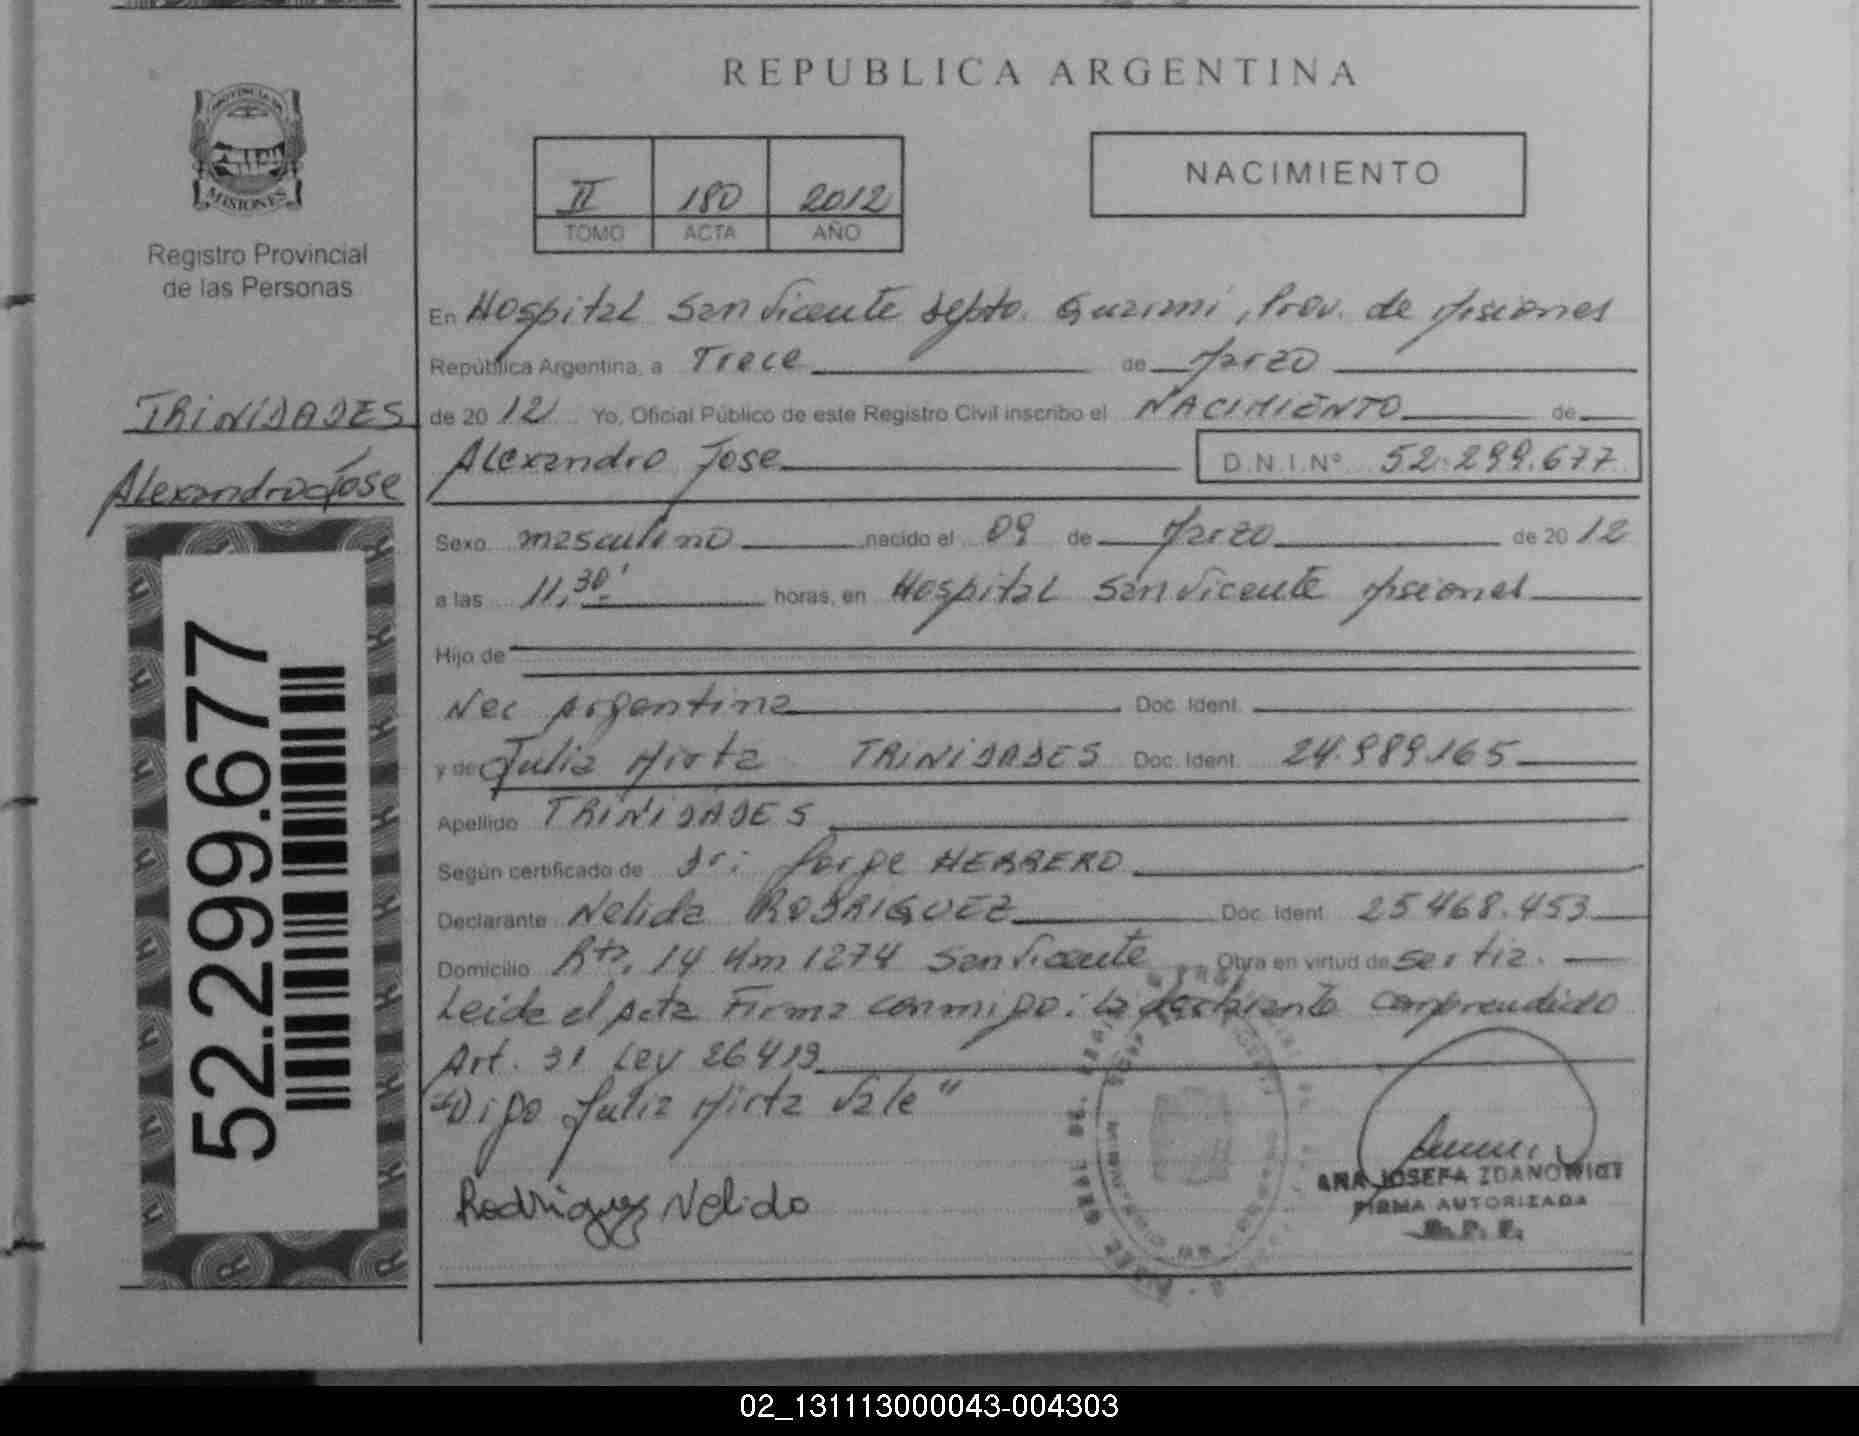 REPUBLICA ARGENTINA
PROVINCIA DE
MISIONES
Registro Provincial
de las Personas
II 180 2012
TOMO ACTA AÑO
NACIMIENTO
En Hospital San Vicente Depto. Guarani, Prov. de Misiones
República Argentina, a Trece de Marzo
de 2012 Yo, Oficial Público de este Registro Civil inscribo el NACIMIENTO de
Alexandro Jose D.N.I.Nº 52.299.677
TRINIDADES
Alexandro Jose
52.299.677
Sexo masculino nacido el 09 de Marzo de 2012
a las 11,30' horas, en Hospital San Vicente Misiones
Hijo de
Nac Argentina Doc. Ident.
y de Julia Mirta TRINIDADES Doc. Ident. 24.989.165
Apellido TRINIDADES
Según certificado de Dr: Jorge HERRERO
Declarante Nelida RODRIGUEZ Doc. Ident. 25468.453
Domicilio Rta. 14 Km 1274 San Vicente Obra en virtud de ser tia.
Leida el Acta Firma conmigo: la declarante comprendido
Art. 31 Ley 26413
"Digo Julia Mirta Vale"
Rodriguez Nelida
ANA JOSEFA ZDANOWICZ
FIRMA AUTORIZADA
R. P. P.
02_131113000043-004303